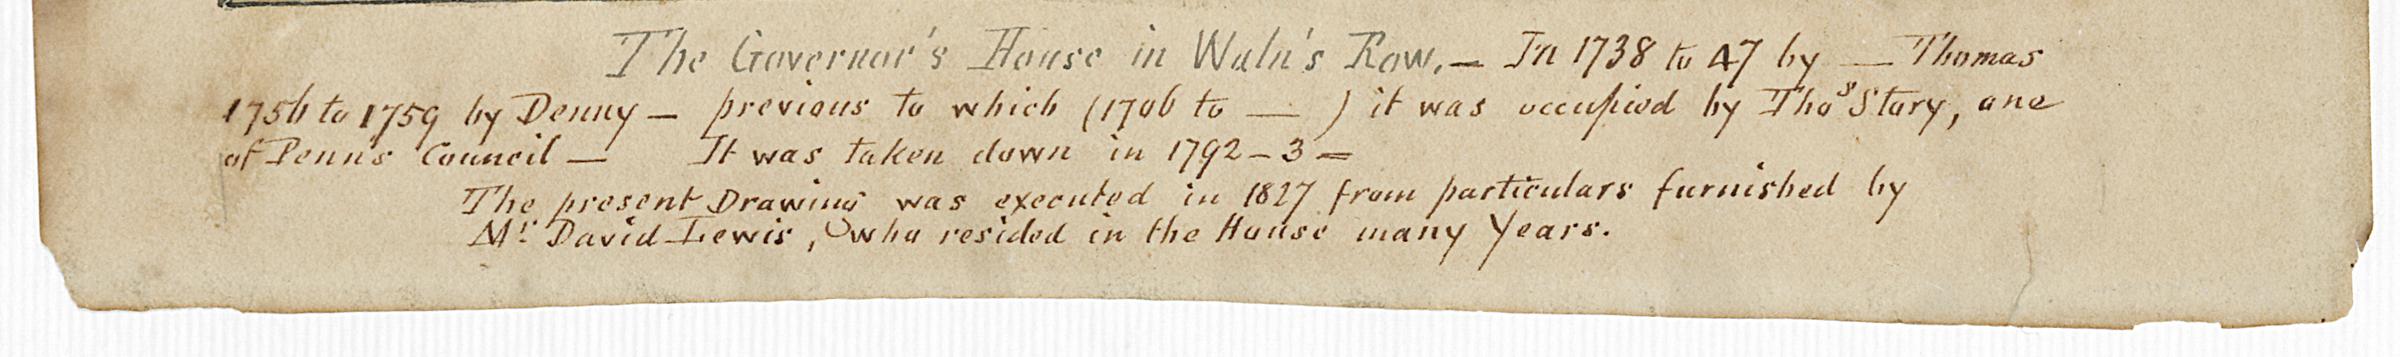 The Governor's House in Waln's Row. — In 1738 to 47 by — Thomas
1756 to 1759 by Denny — previous to which (1706 to — ) it was occupied by Thos Story, one
of Penn's Council — It was taken down in 1792-3 =
The present Drawing was executed in 1827 from particulars furnished by
Mr. David Lewis, who resided in the House many Years.